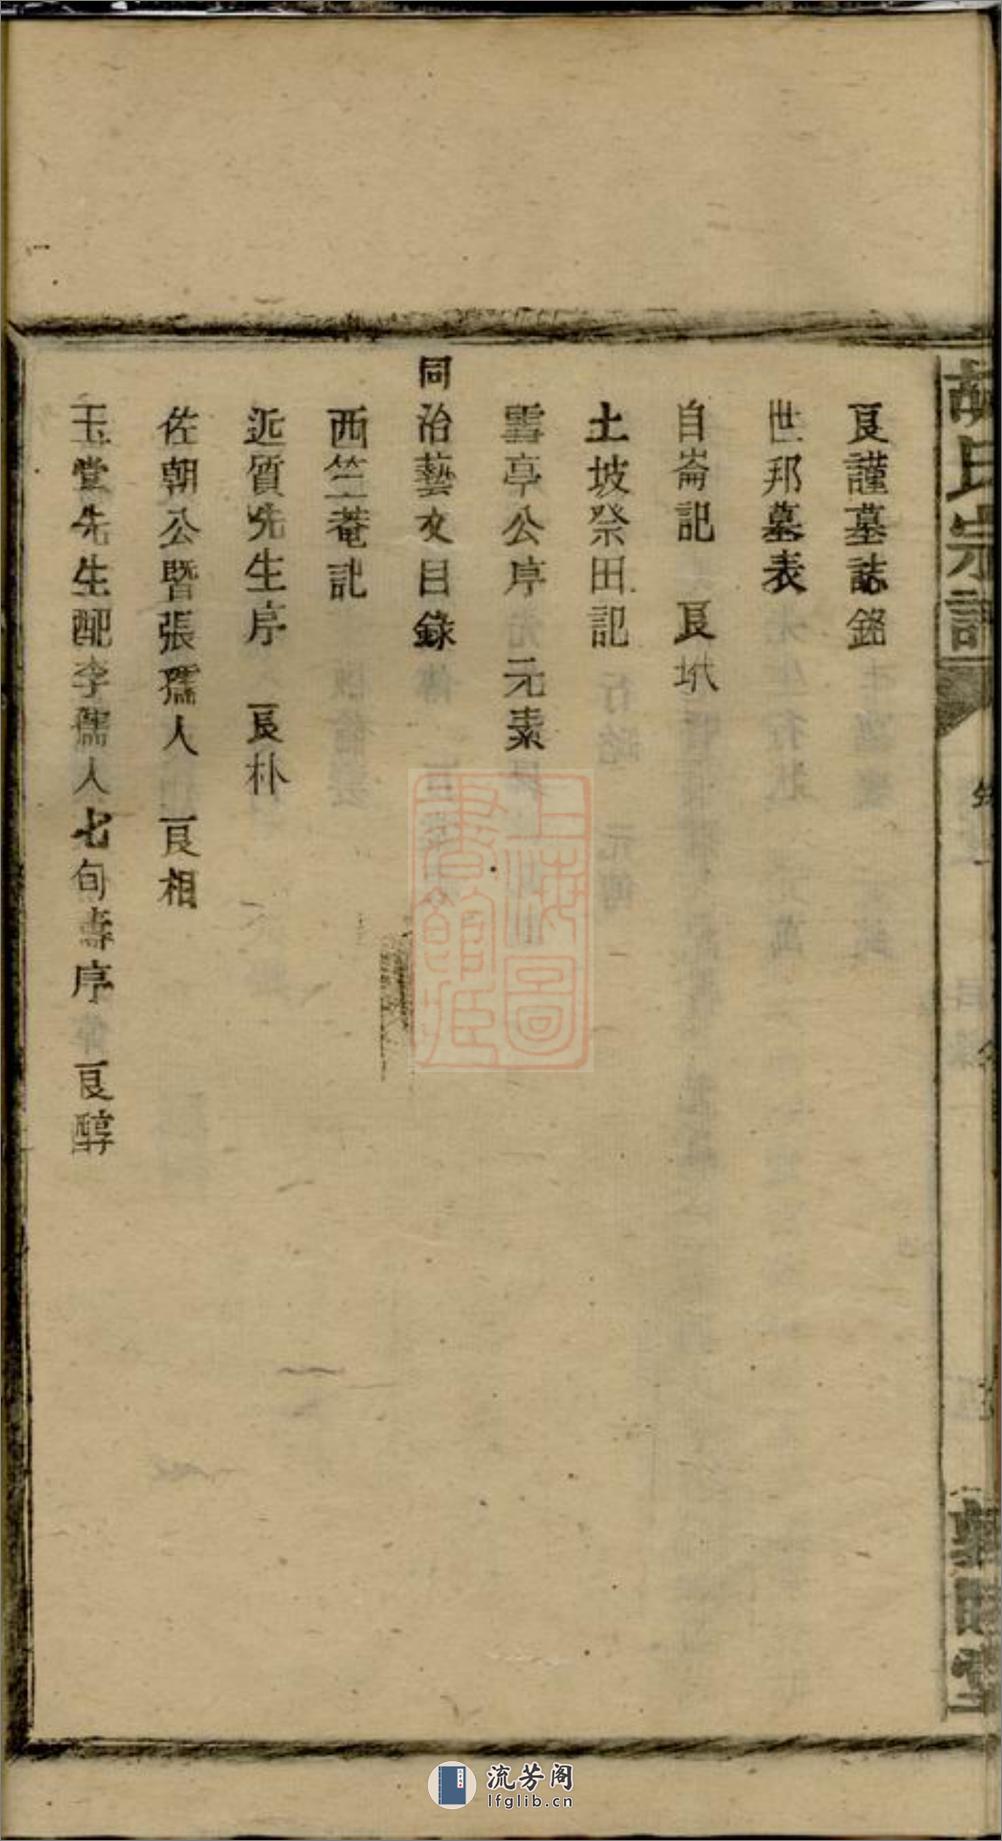 胡氏宗譜
良謹墓誌銘
世邦墓表
自崙記 良璣
土坡祭田記
雪亭公序 元素
同治藝文目錄
西竺菴記
近質先生序 良朴
佐朝公暨張孺人 良相
玉堂先生配李孺人七旬壽序 良醇
上海圖書館藏
流芳阁
lfglib.cn